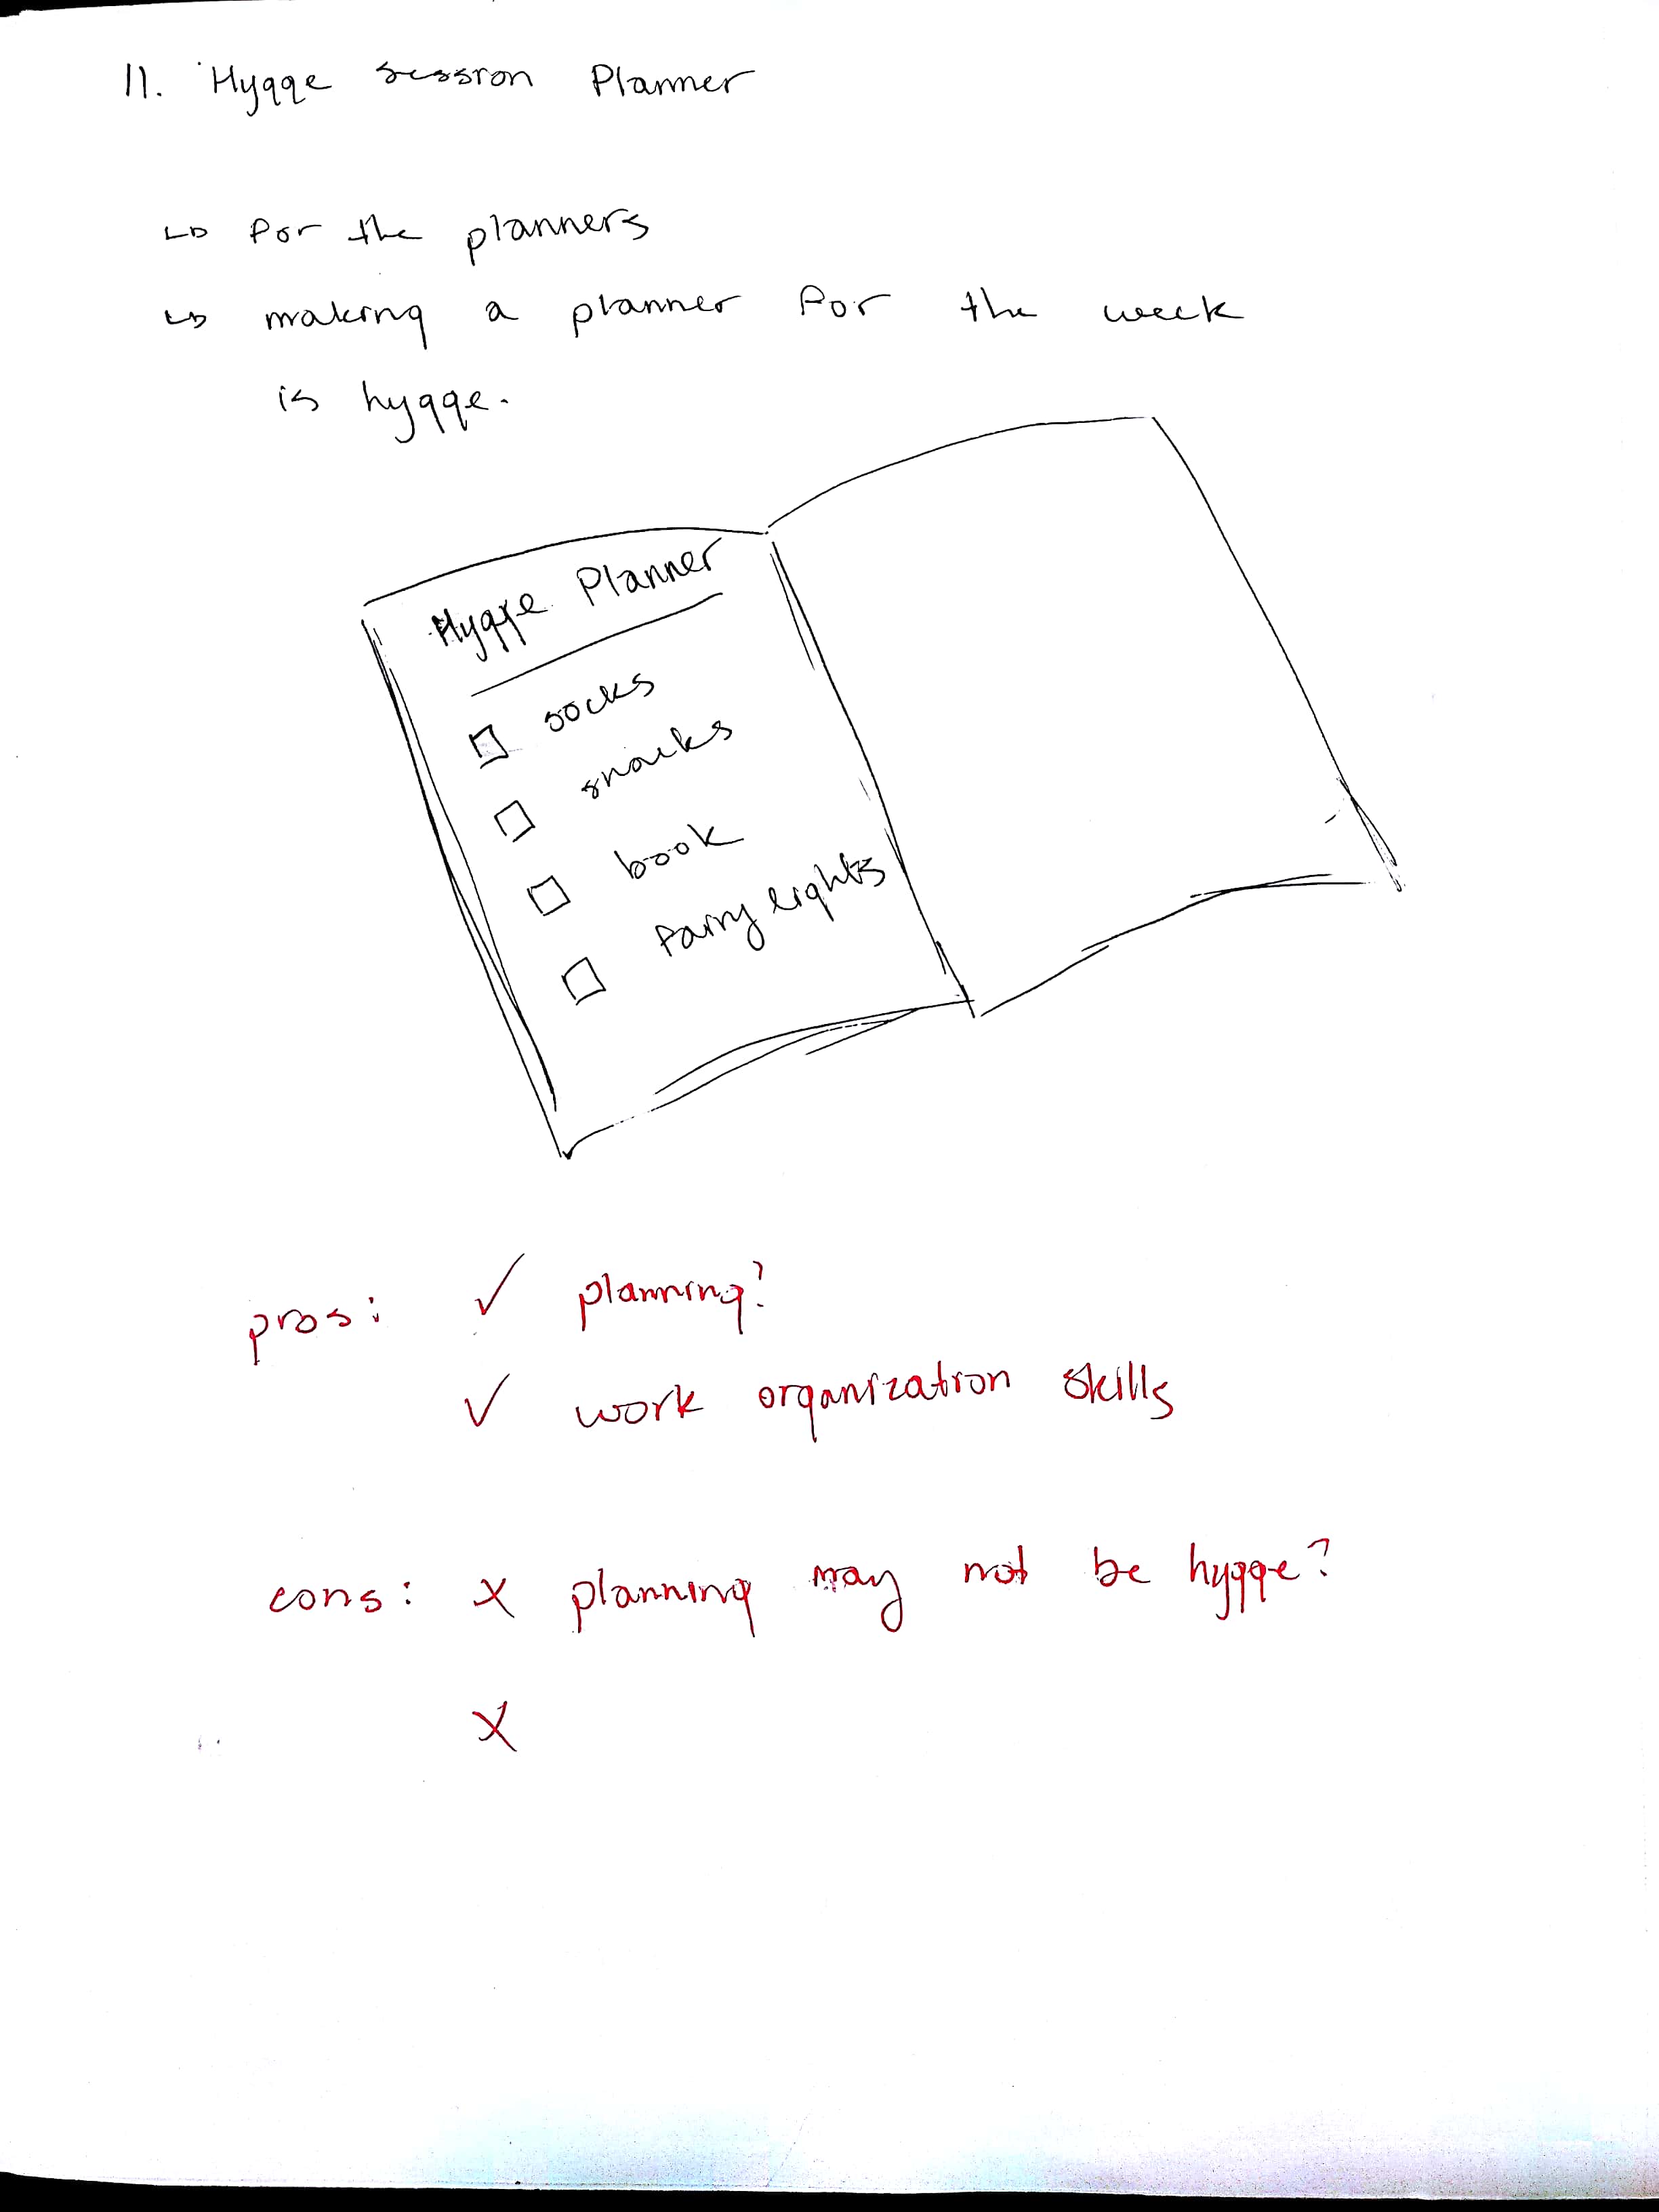 11. Hygge session Planner
↳ for the planners
↳ making a planner for the week
is hygge.
Hygge Planner
☐ socks
☐ snacks
☐ book
☐ fairy lights
pros: ✓ planning?
✓ work organization skills
cons: x planning may not be hygge?
x